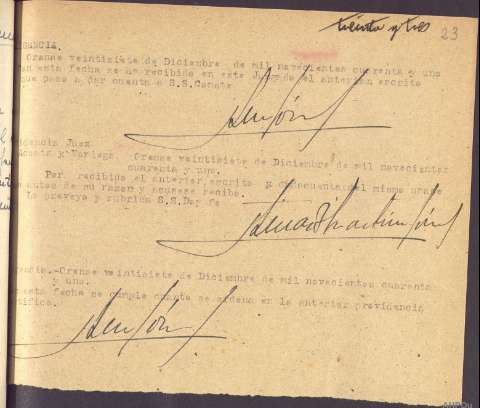 treinta y tres 23
GENCIA.
Orense veintisiete de Diciembre de mil novecientos cuarenta y uno
en esta fecha se ha recibido en este Juzgado el anterior escrito
que paso a dar cuenta a S.S. Conste
idencia Juez
y Variega Orense veintisiete de Diciembre de mil novecientos
cuarenta y uno.
Por recibido el anterior escrito y del mismo unase
autos de su razon y acusese recibo.
lo proveyo y rubrica S.S. Doy fe
encia.-Orense veintisiete de Diciembre de mil novecientos cuarenta
y uno.
esta fecha se cumple cuanto se ordena en la anterior providencia
tifico.